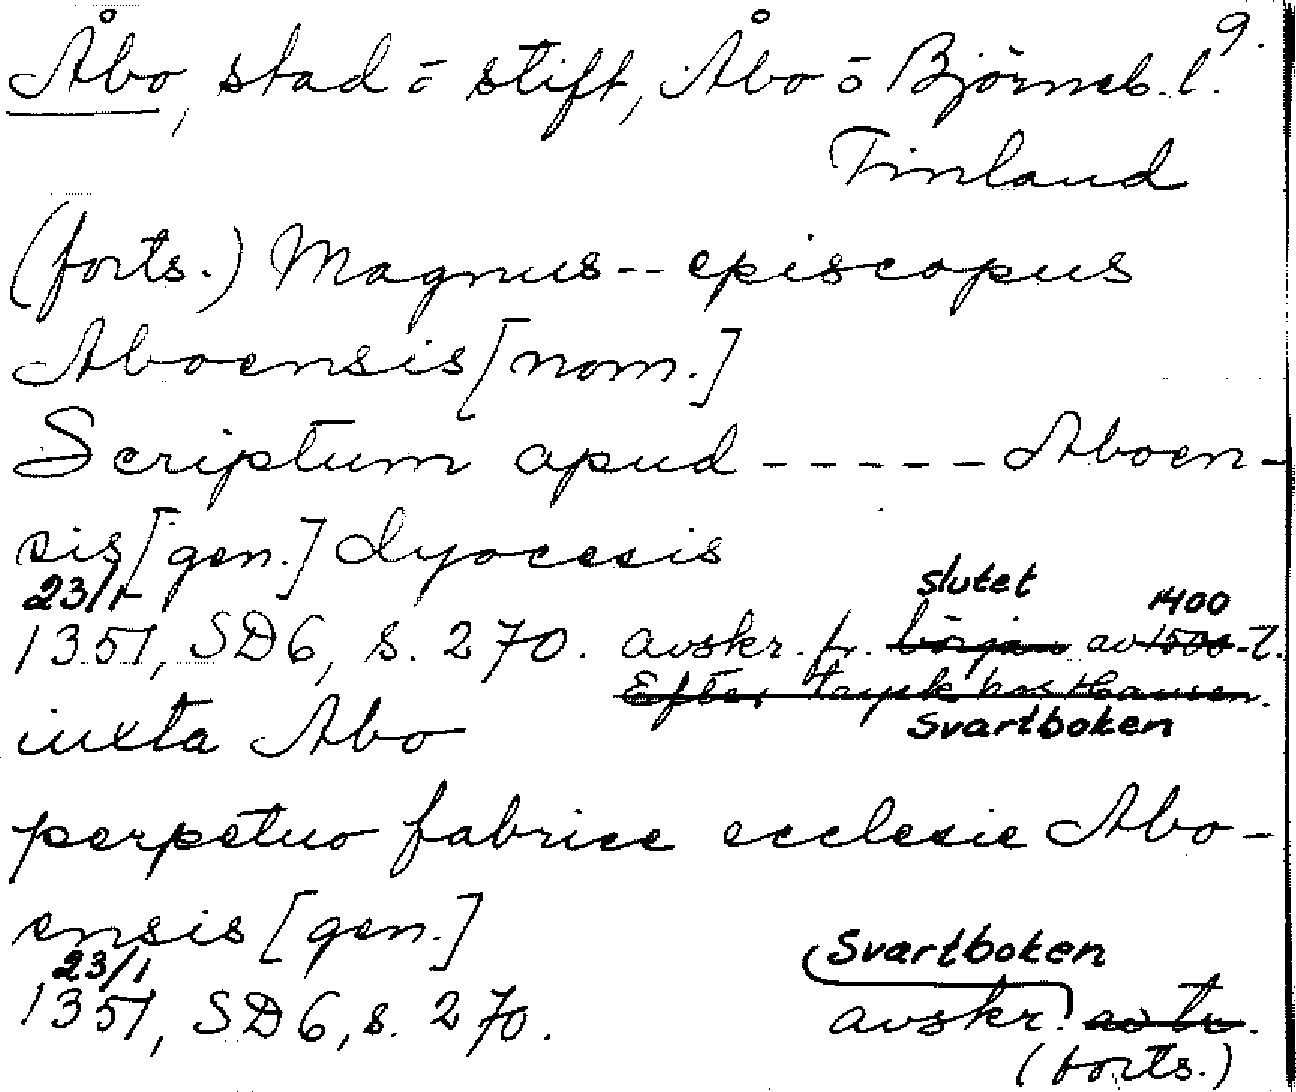 9.
Åbo, stad o stift, Åbo o Björneb. l.
Finland
(forts.) Magnus -- episcopus
Aboensis [nom.]
Scriptum apud ----- Aboen-
sis [gen.] dyocesis
23/1 slutet 1400
1351, SD6, s. 270. avskr. fr. början av 1500-t.
Efter tryck hos Hausen.
iuxta Abo Svartboken
perpetuo fabrice ecclesie Abo-
ensis [gen.]
23/1 Svartboken
1351, SD6, s. 270. avskr. av tr.
(forts.)